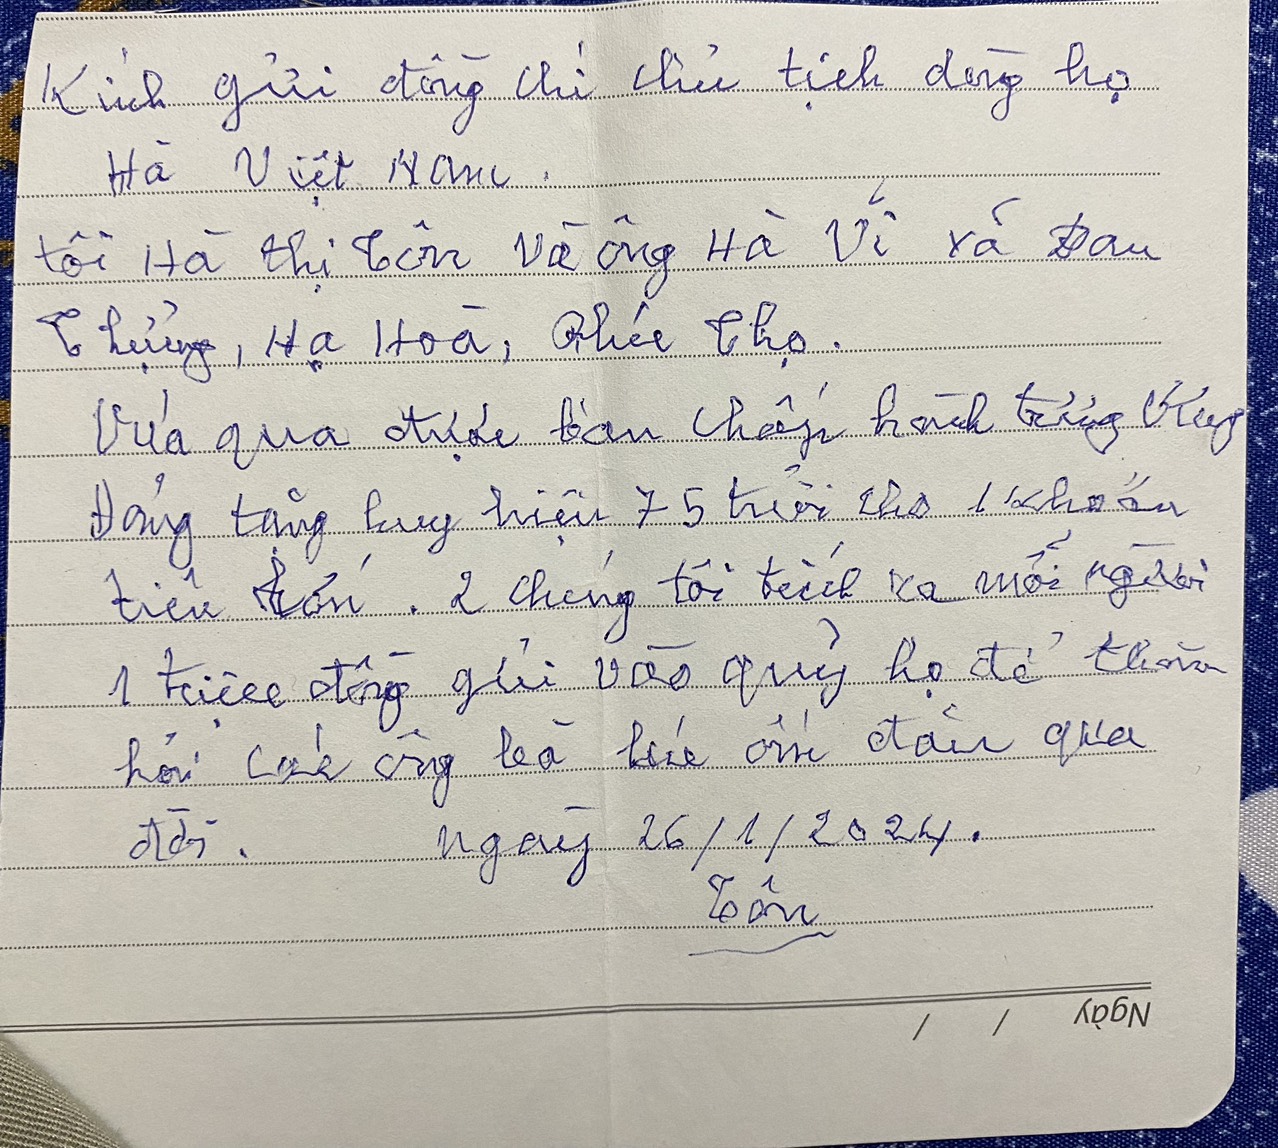 Kính gửi đồng chí chủ tịch dòng họ
Hà Việt Nam.
tôi Hà thị Tôn và ông Hà Vĩ xã Đan
Thượng, Hạ Hoà, Phú Thọ.
Vừa qua được ban chấp hành trung ương
Đảng tặng huy hiệu 75 tuổi cho 1 khoản
tiền lớn. 2 chúng tôi trích ra mỗi người
1 triệu đồng gửi vào quỹ họ để thăm
hỏi các ông bà lúc ốm đau qua
đời. ngày 26/1/2024.
Tôn
Ngày / /